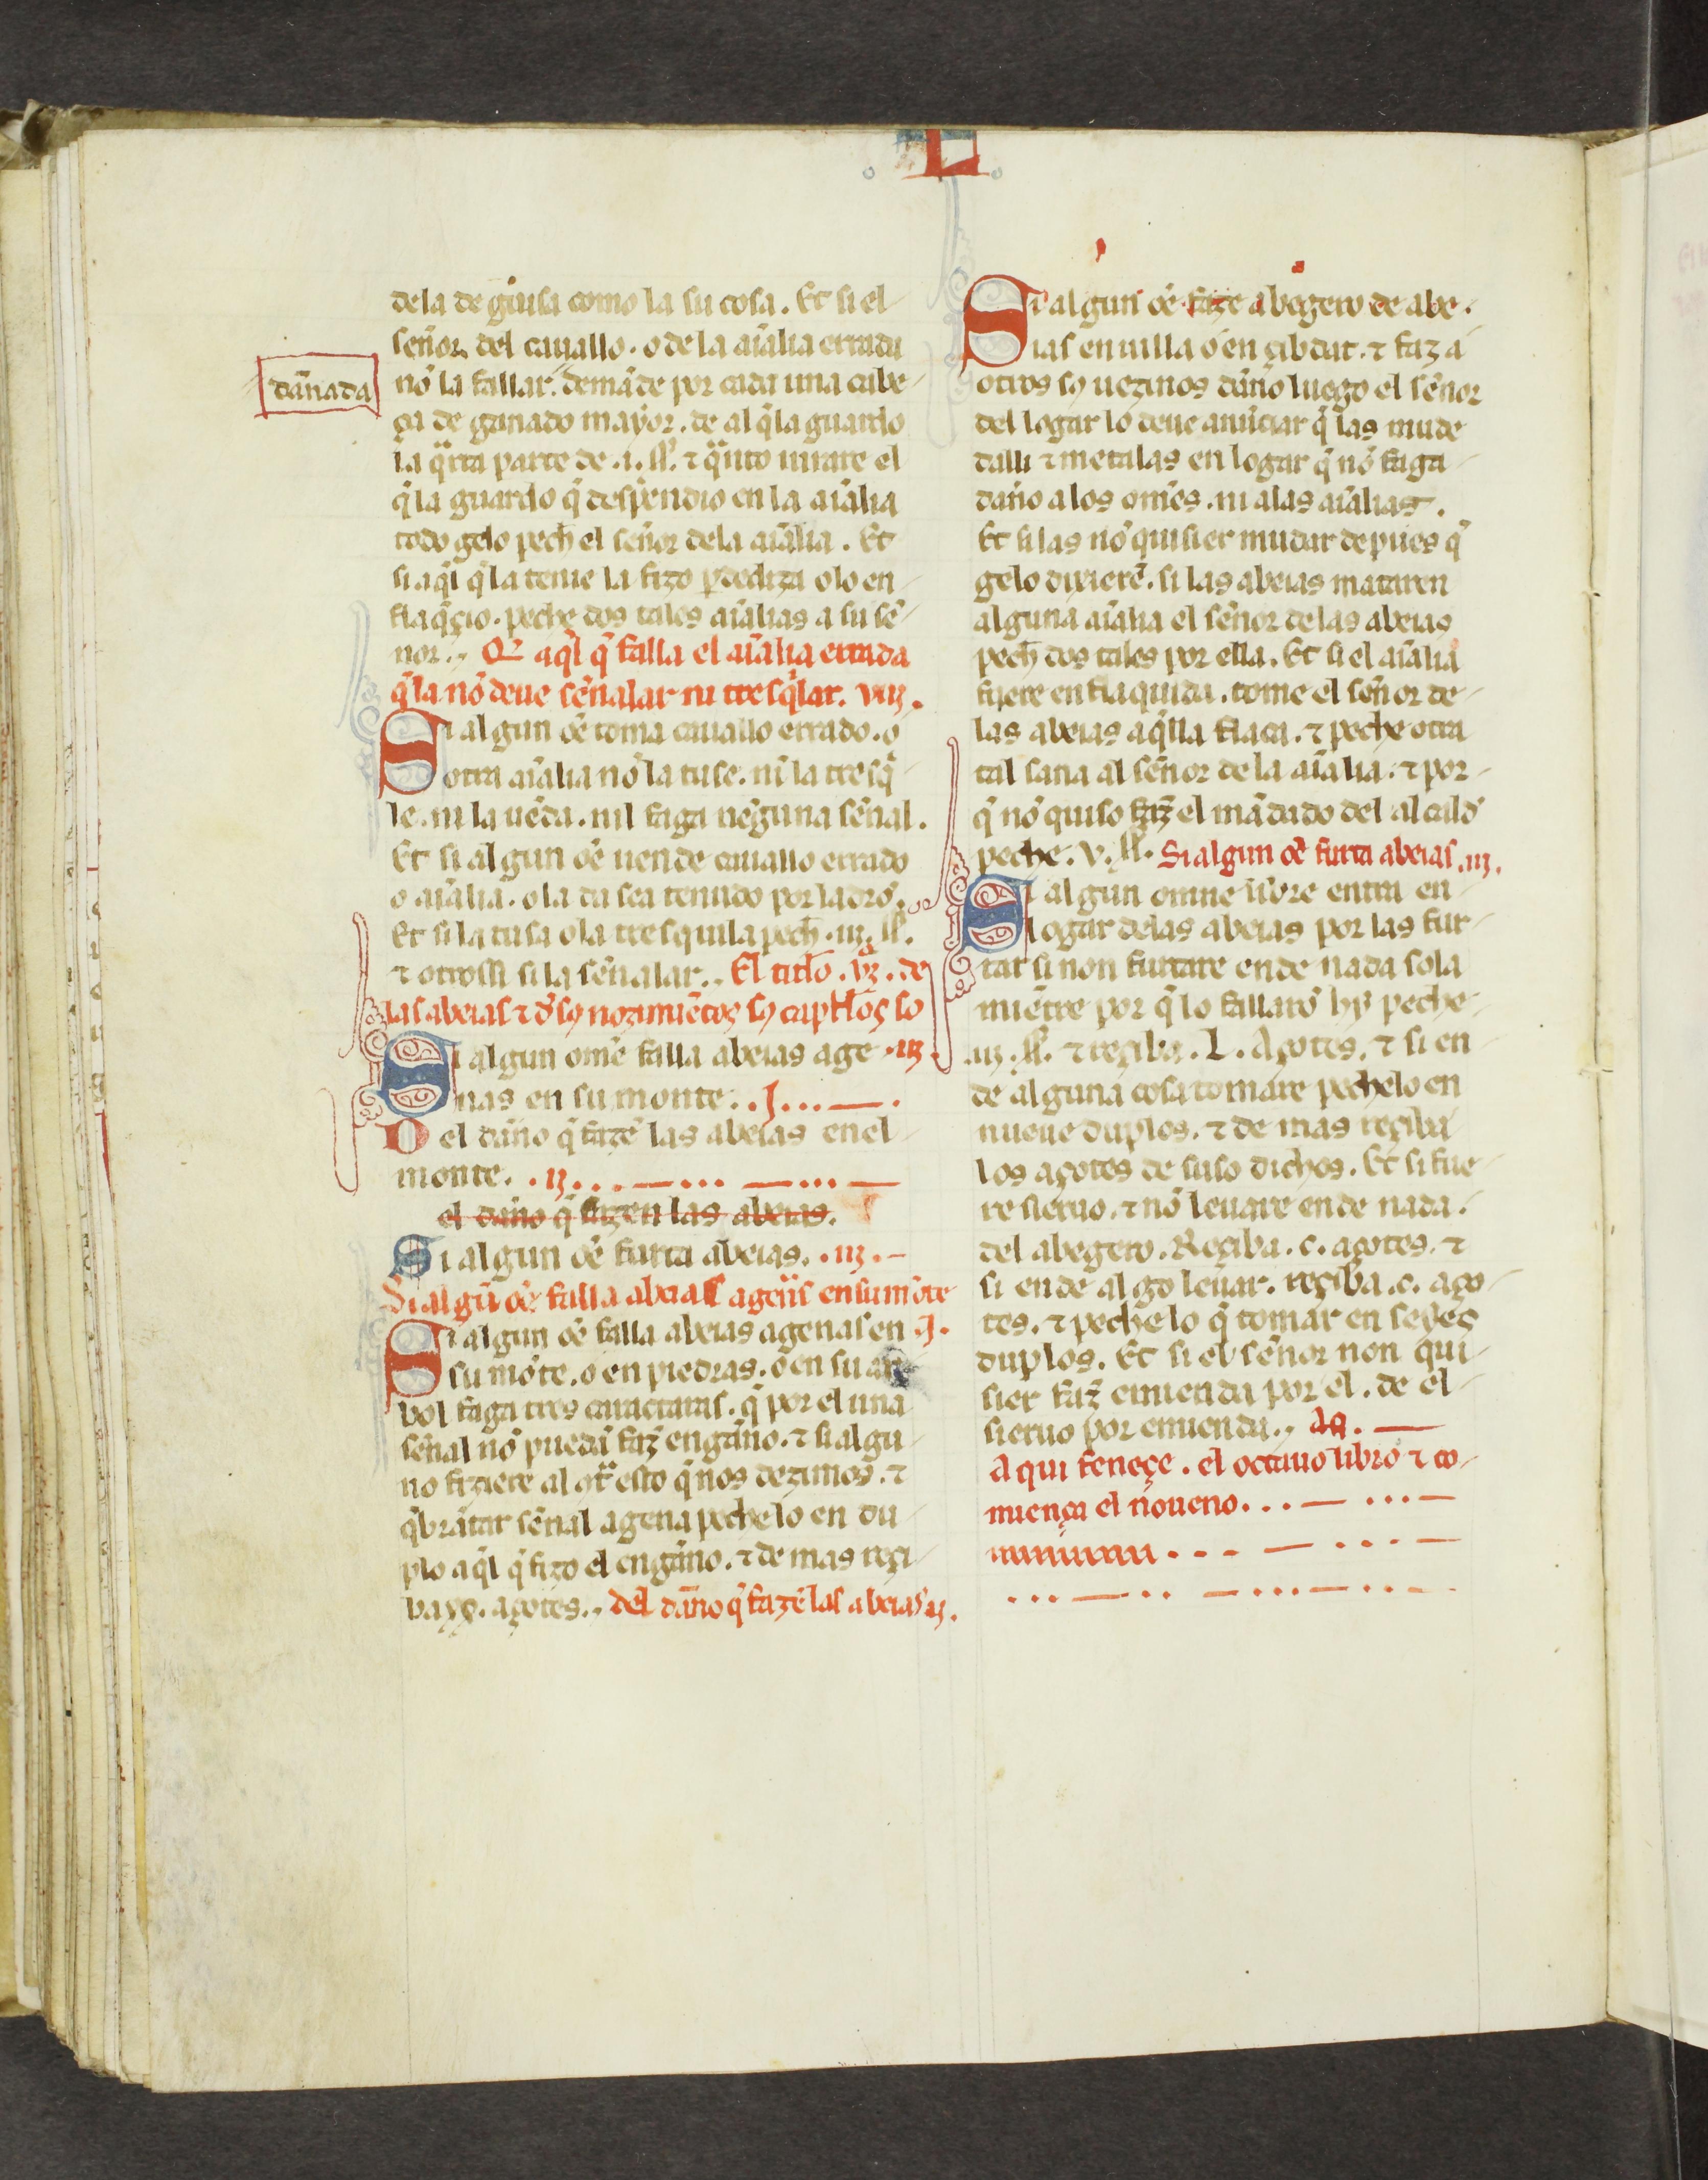 L
dela de guisa como la su cosa. Et si el
señor del cauallo. o de la aīalia errada
dān̄ada
nō la fallar. demāde por cada una cabe
ça de ganado mayor. de al q̄ la guardo
la q̄rta parte de .i. ſſ. ⁊ q̄nto iurare el
q̄ la guardo q̄ despendio en la aīalia
todo gelo pech̄ el señor dela aīalia. Et
si aq̄l q̄ la tenie la fizo p̄dediza o lo en
flaq̄çio. peche dos tales aīalias a su se
ñor. Q̄ aq̄l q̄ falla el aīalia errada
q̄ la nō deue señalar ni tresq̄lar. viij.
Si algun oē toma cauallo errado. o
otra aīalia nō la tuse. ni la tresq̄
le. ni la uēda. nil faga neguna señal.
Et si algun oē uende cauallo errado
o aīalia. o la da sea tenudo por ladrō.
Et si la tusa o la tresquila pech̄ .iij. ſſ.
⁊ otrossi si la señalar. El titlo .vj. de
las abeias ⁊ d̄ sꝯ nozimiētos sꝯ capłos so
Si algun omē falla abeias age .iij.
nas en su monte. .j. ... — .
D el daño q̄ fazē las abeias en el
monte. .ij. . . — ... — ... —
el daño q̄ fazen las abeias.
Si algun oē furta abeias. .iij. –
Si algū oē falla abeias agenas en su mōte
Si algun oē falla abeias agenas en .j.
su mōte. o en piedras. o en su ar
bol faga tres caractaras. q̄ por el una
señal nō puedā faz̄ engaño. ⁊ si algu
no fiziere al qt̄ esto q̄ nos dezimos. ⁊
q̄brātar señal agena pechelo en du
plo aq̄l q̄ fizo el engaño. ⁊ de mas reçi
ba xx. açotes. del daño q̄ fazē las abeias ij.
Si algun oē faze abegero de abe
ias en uilla o en çibdat. ⁊ faz a
otros sꝯ uezinos daño luego el señor
del logar lo deue anūciar q̄ las mude
dalli ⁊ metalas en logar q̄ nō faga
daño a los omēs. ni alas aīalias.
Et si las nō quisier mudar depues q̄
gelo dixierē. si las abeias mataren
alguna aīalia el señor de las abeias
pech̄ dos tales por ella. Et si el aīalia
fuere enflaquida. tome el señor de
las abeias aq̄lla flaca. ⁊ peche otra
tal sana al señor de la aīalia. ⁊ por
q̄ nō quiso faz̄ el mādado del alcald̄
peche. v. ſſ. Si algun oē furta abeias .iij.
Si algun omne libre entra en
logar delas abeias por las fur
tar si non furtare ende nada sola
miētre por q̄ lo fallarō hy peche
.iij. ſſ. ⁊ reçiba. L. Açotes. ⁊ si en
de alguna cosa tomare pechelo en
nueue duplos. ⁊ de mas reçiba
los açotes de suso dichos. Et si fue
re sieruo. ⁊ nō leuare ende nada.
del abegero. Reçiba. c. açotes. ⁊
si ende algo leuar. reçiba .c. aço
tes. ⁊ peche lo q̄ tomar en seyes
duplos. Et si el señor non qui
sier faz̄ emienda por el. de el
sieruo por emienda. —
Aqui feneçe. el octauo libro ⁊ co
miença el noueno. . . — ... —
. . . — ... —
... — .. — ... — .. —